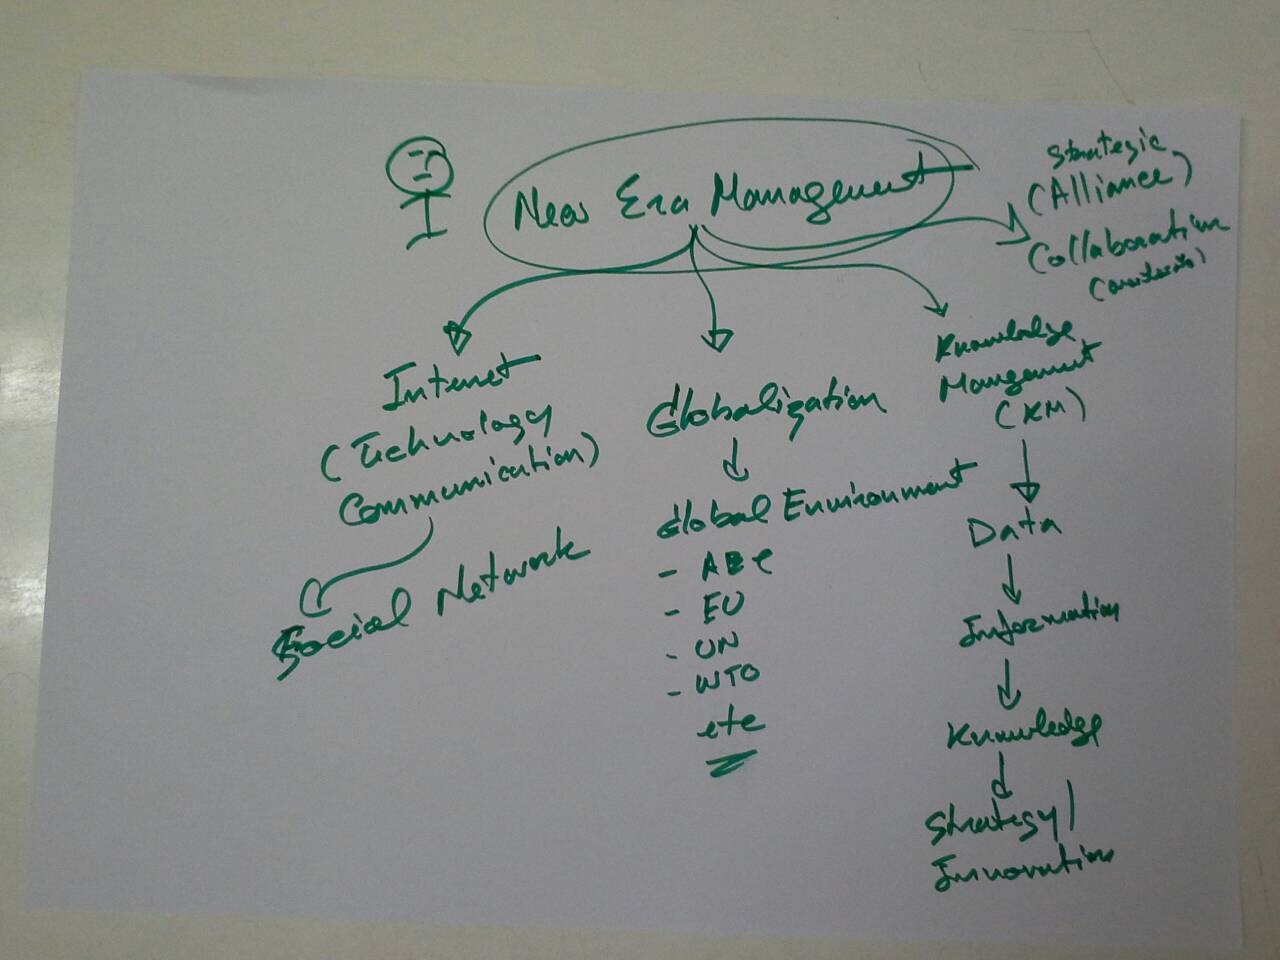 New Era Management
Strategic
(Alliance)
Collaboration
Internet
(Technology
Communication)
Social Network
Globalization
Global Environment
- AEC
- EU
- UN
- WTO
etc
Knowledge
Management
(KM)
Data
Information
Knowledge
Strategy/
Innovation